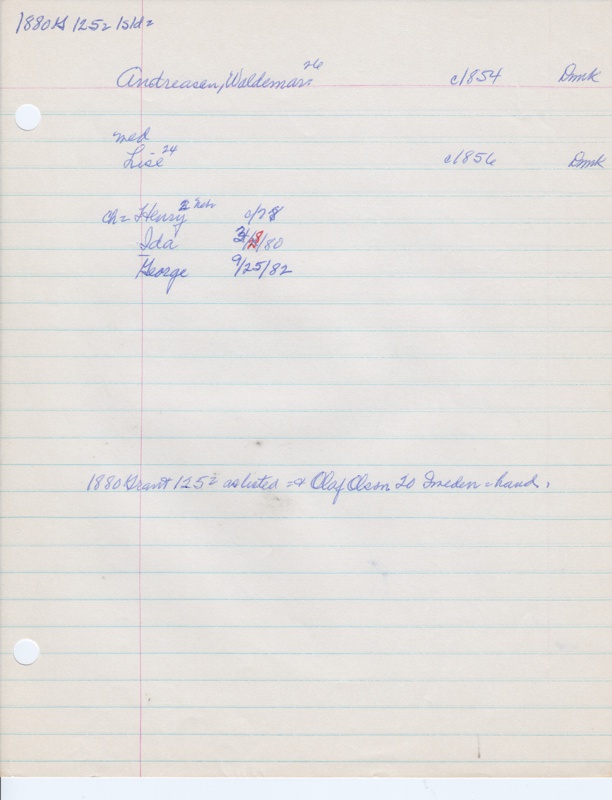 1880 G 125= 1sld=
Andreasen, Waldemar 26 c/1854 Dmk
med
Lise 24 c/1856 Dmk
ch= Henry 2 Nebr c/78
Ida 3/18/80
George 9/25/82
1880 Grant 125= as listed =+ Olaf Olson 20 Sweden = hand.